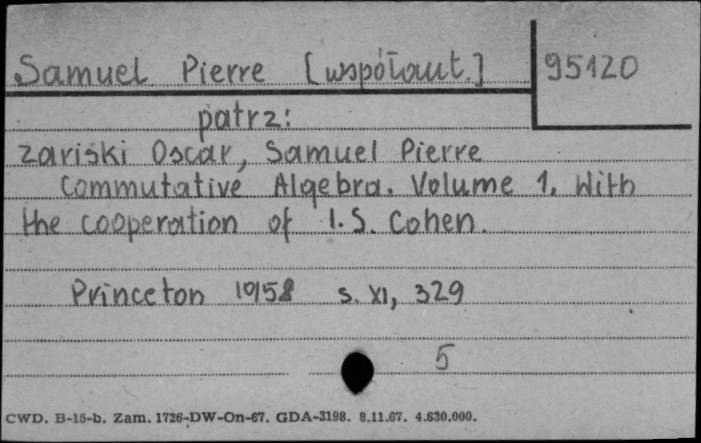 Samuel Pierre [współaut.] 95120
patrz:
Zariski Oscar, Samuel Pierre
Commutative Algebra. Volume 1. With
the cooperation of I.S. Cohen.
Princeton 1958 s. XI, 329
5
CWD. B-15-b. Zam. 1726-DW-On-67. GDA-3198. 8.11.67. 4.630.000.